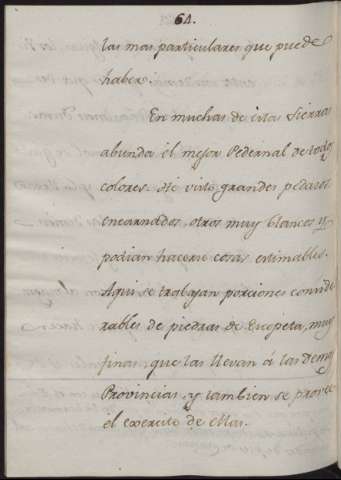 64.
las mas particulares que puede
haber.
En muchas de estas Sierras
abunda el mejor Pedernal de todos
colores. He visto grandes pedazos
encarnados, otros muy blancos y
podian hacerse cosas estimables.
Aqui se trabajan porciones conside
rables de piedras de Escopeta, muy
finas, que las llevan á las demas
Provincias, y tambien se provee
el exercito de ellas.